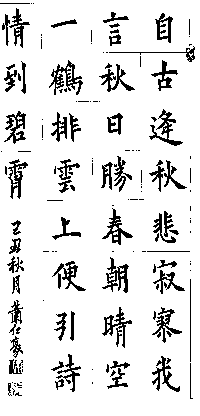 自古逢秋悲寂寥我
言秋日勝春朝晴空
一鶴排雲上便引詩
情到碧霄
丑秋月